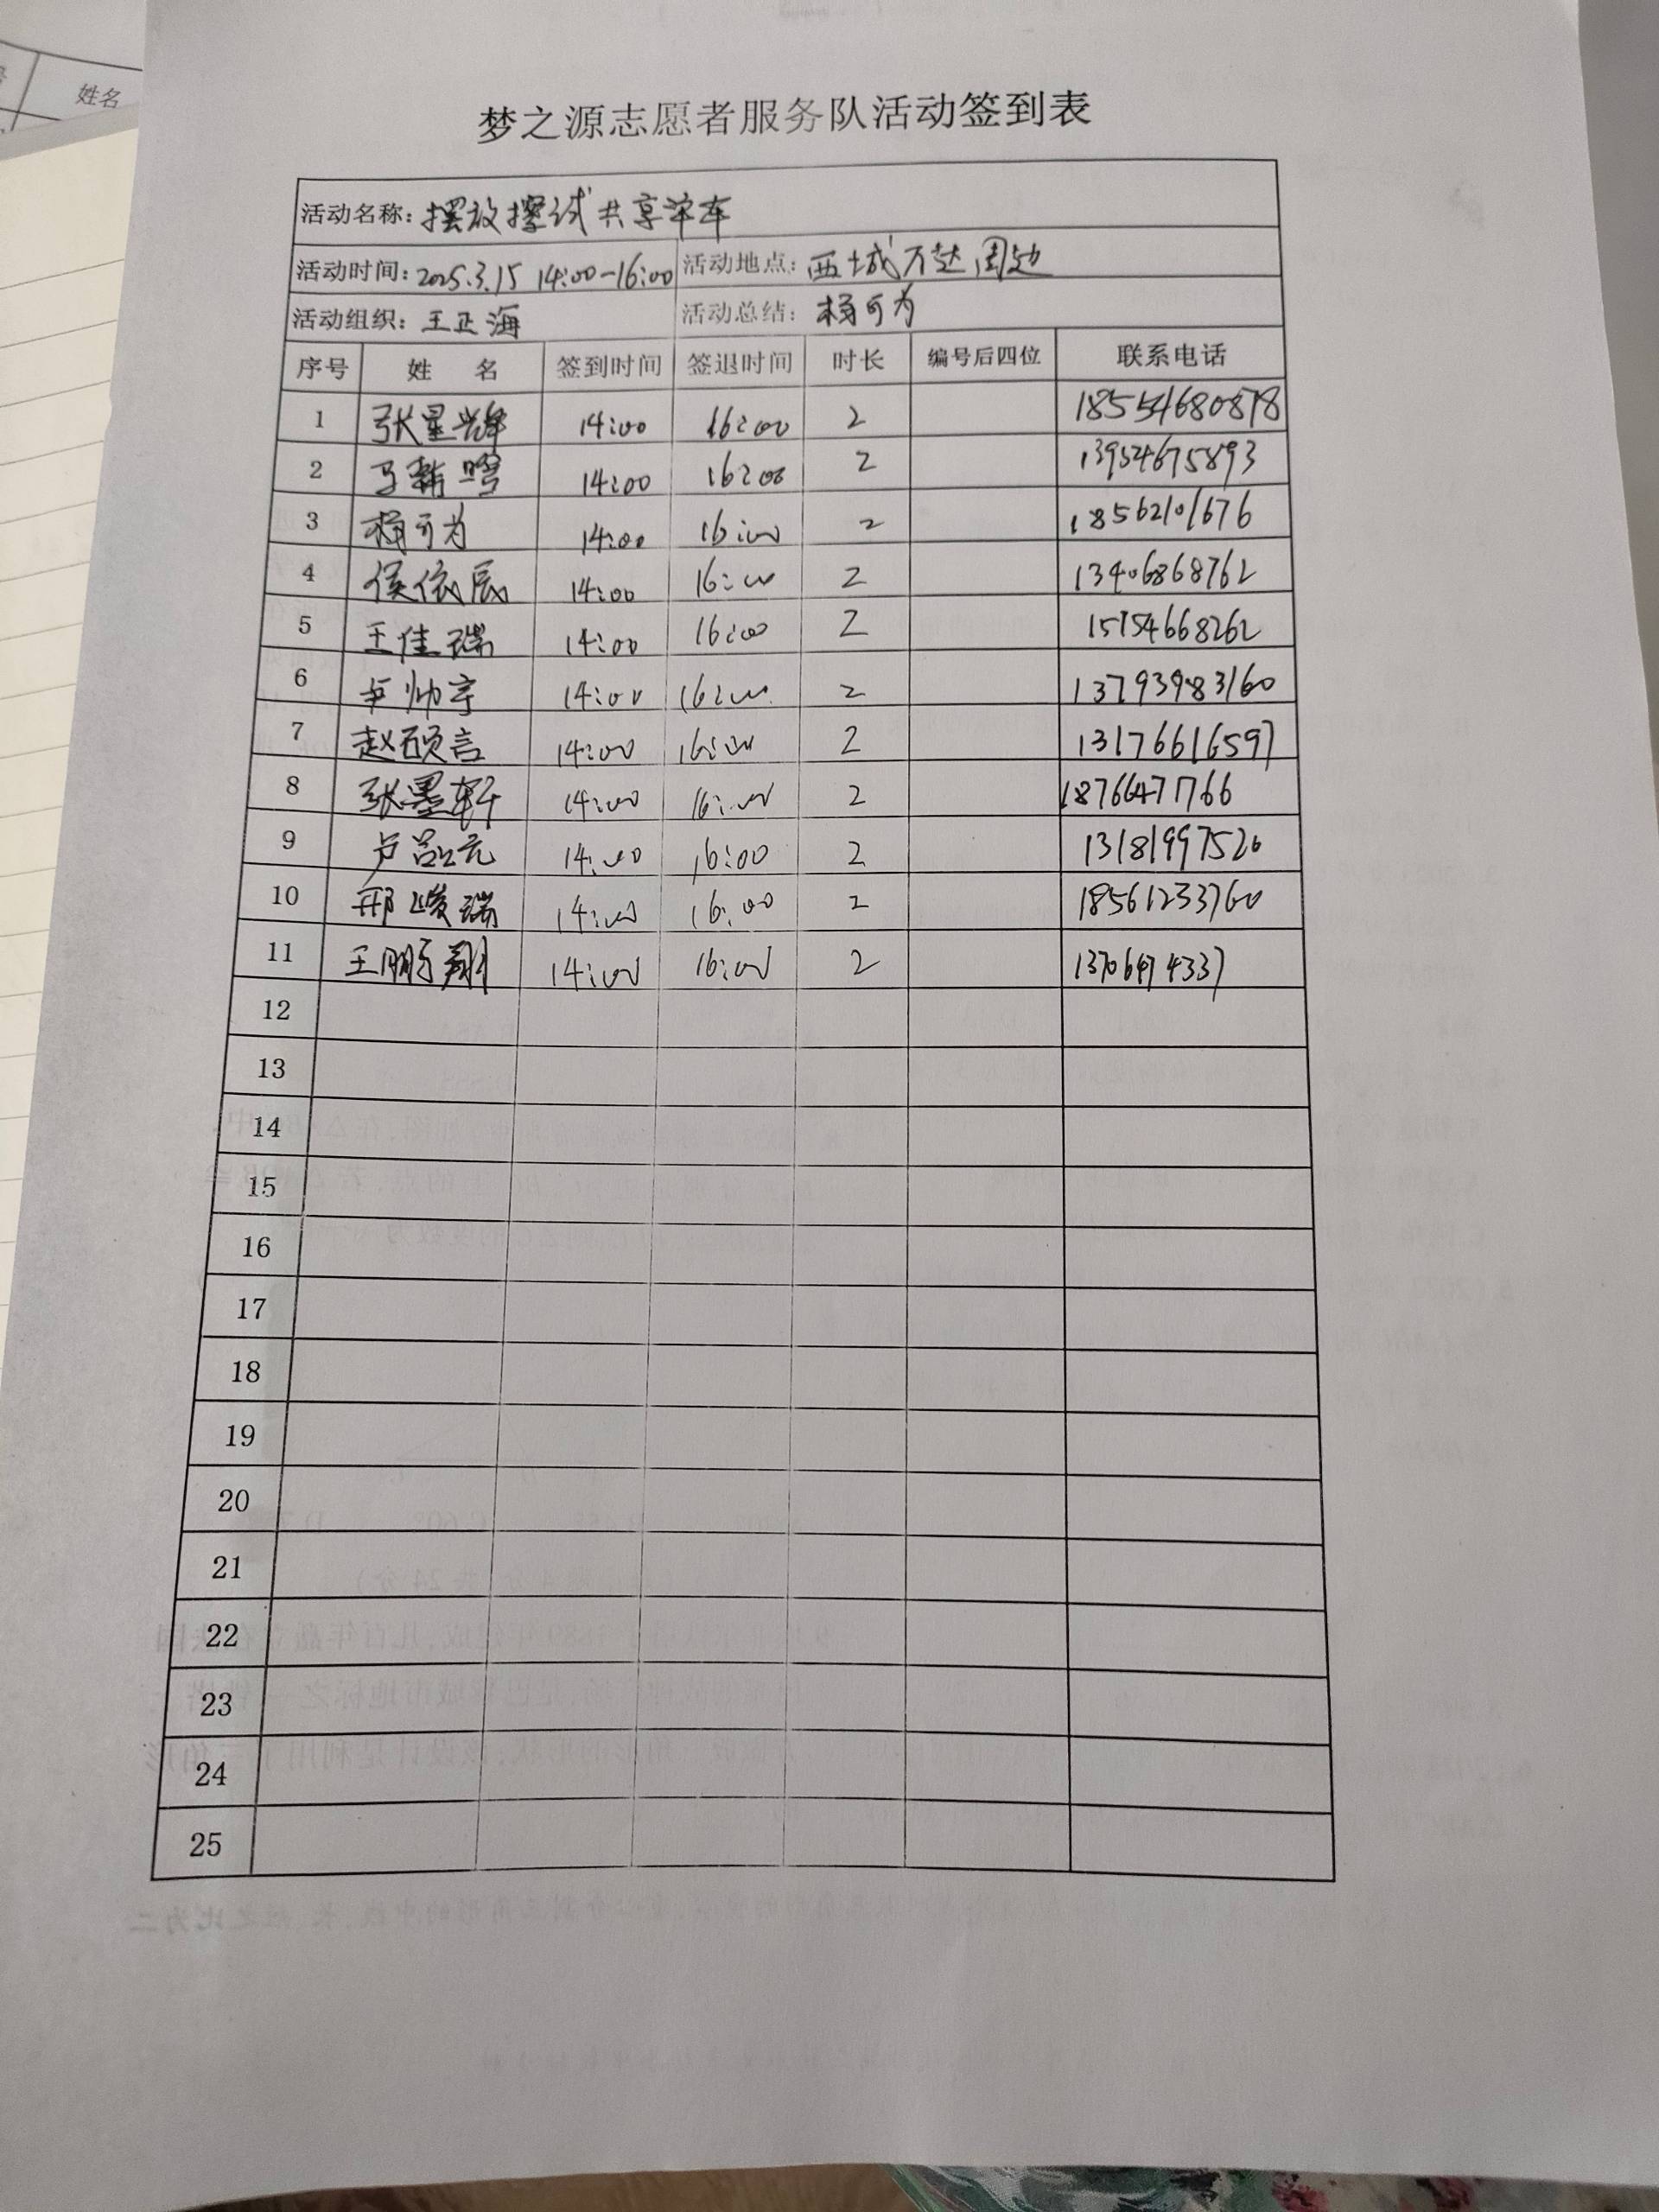 姓名
梦之源志愿者服务队活动签到表
活动名称：摆放擦试共享单车
活动时间：2025.3.15 14:00-16:00 活动地点：西城万达周边
活动组织：王正海 活动总结：杨可为
序号 姓 名 签到时间 签退时间 时长 编号后四位 联系电话
1 张星烨 14:00 16:00 2 18554680878
2 马 14:00 16:00 2 13954675893
3 杨可为 14:00 16:00 2 18562101676
4 侯依辰 14:00 16:00 2 13406868762
5 王佳瑞 14:00 16:00 2 15154668262
6 卢帅宇 14:00 16:00 2 13793983160
7 赵硕言 14:00 16:00 2 13176616597
8 张墨轩 14:00 16:00 2 18766471766
9 卢元 14:00 16:00 2 13181997526
10 邢峻瑞 14:00 16:00 2 18561233760
11 王鹏翔 14:00 16:00 2 13706474337
12
13
14
15
16
17
18
19
20
21
22
23
24
25